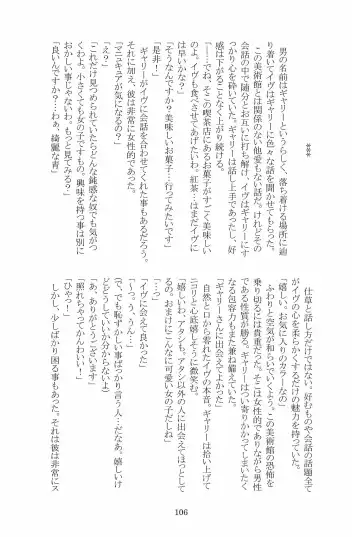 ***
男の名前はギャリーというらしく、落ち着ける場所に辿
り着いてイヴはギャリーに色々な話を聞かせてもらった。
この美術館とは関係のない他愛もない話だ。けれどその
会話の中で随分とお互いに打ち解け、イヴはギャリーにす
っかり心を許いていた。ギャリーは話し上手であり、好
感は下がることなく上がり続ける。
「――でね、そこの喫茶店にあるお菓子がすごく美味しい
のよ。イヴも食べさせてあげたいわ。紅茶…はまだイヴに
は早いかな？」
「そうなんですか？美味しいお菓子…行ってみたいです」
「是非！」
ギャリーがイヴに会話を合わせてくれた事もあるだろう。
それに加え、彼は非常に女性的であった。
「マニキュアが気になるの？」
「え？」
「これだけ見つめられていたらどんな鈍感な奴でも気がつ
くわよ。小さくても女の子ですもの。興味を持つ事は別に
おかしい事じゃないわ。もっと見てみる？」
「良いんですか？…わぁ、綺麗な青」
仕草と話し方だけではない。好むものや会話の話題全て
がイヴの心を柔らかくするだけの魅力を持っていた。
「嬉しい。お気に入りのカラーなの」
ふわりと空気が和らいでいくよう。この美術館の恐怖を
乗り切るには貴重だった。そこは女性的でありながら男性
である性質が勝る。ギャリーはつい寄りかかってしまいたく
なる包容力もまた兼ね備えていた。
「ギャリーさんに出会えてよかった」
自然と口から零れたイヴの本音。ギャリーは拾い上げて
ニコリと心底嬉しそうに微笑む。
「嬉しいわ。アタシも、アタシ以外の人に出会えてほっとして
るの。おまけにこんなに可愛い女の子だしね」
「…っ」
「イヴに会えて良かった」
「～っ。う、うん」
で、でも恥ずかしい事ばっかり言う人…だなぁ。嬉しいけ
どどうしていいか分からないよ）
「あ、ありがとうございます」
「照れちゃってかんわい！」
「ひゃっ！」
しかし、少しばかり困る事もあった。それは彼は非常にス
106